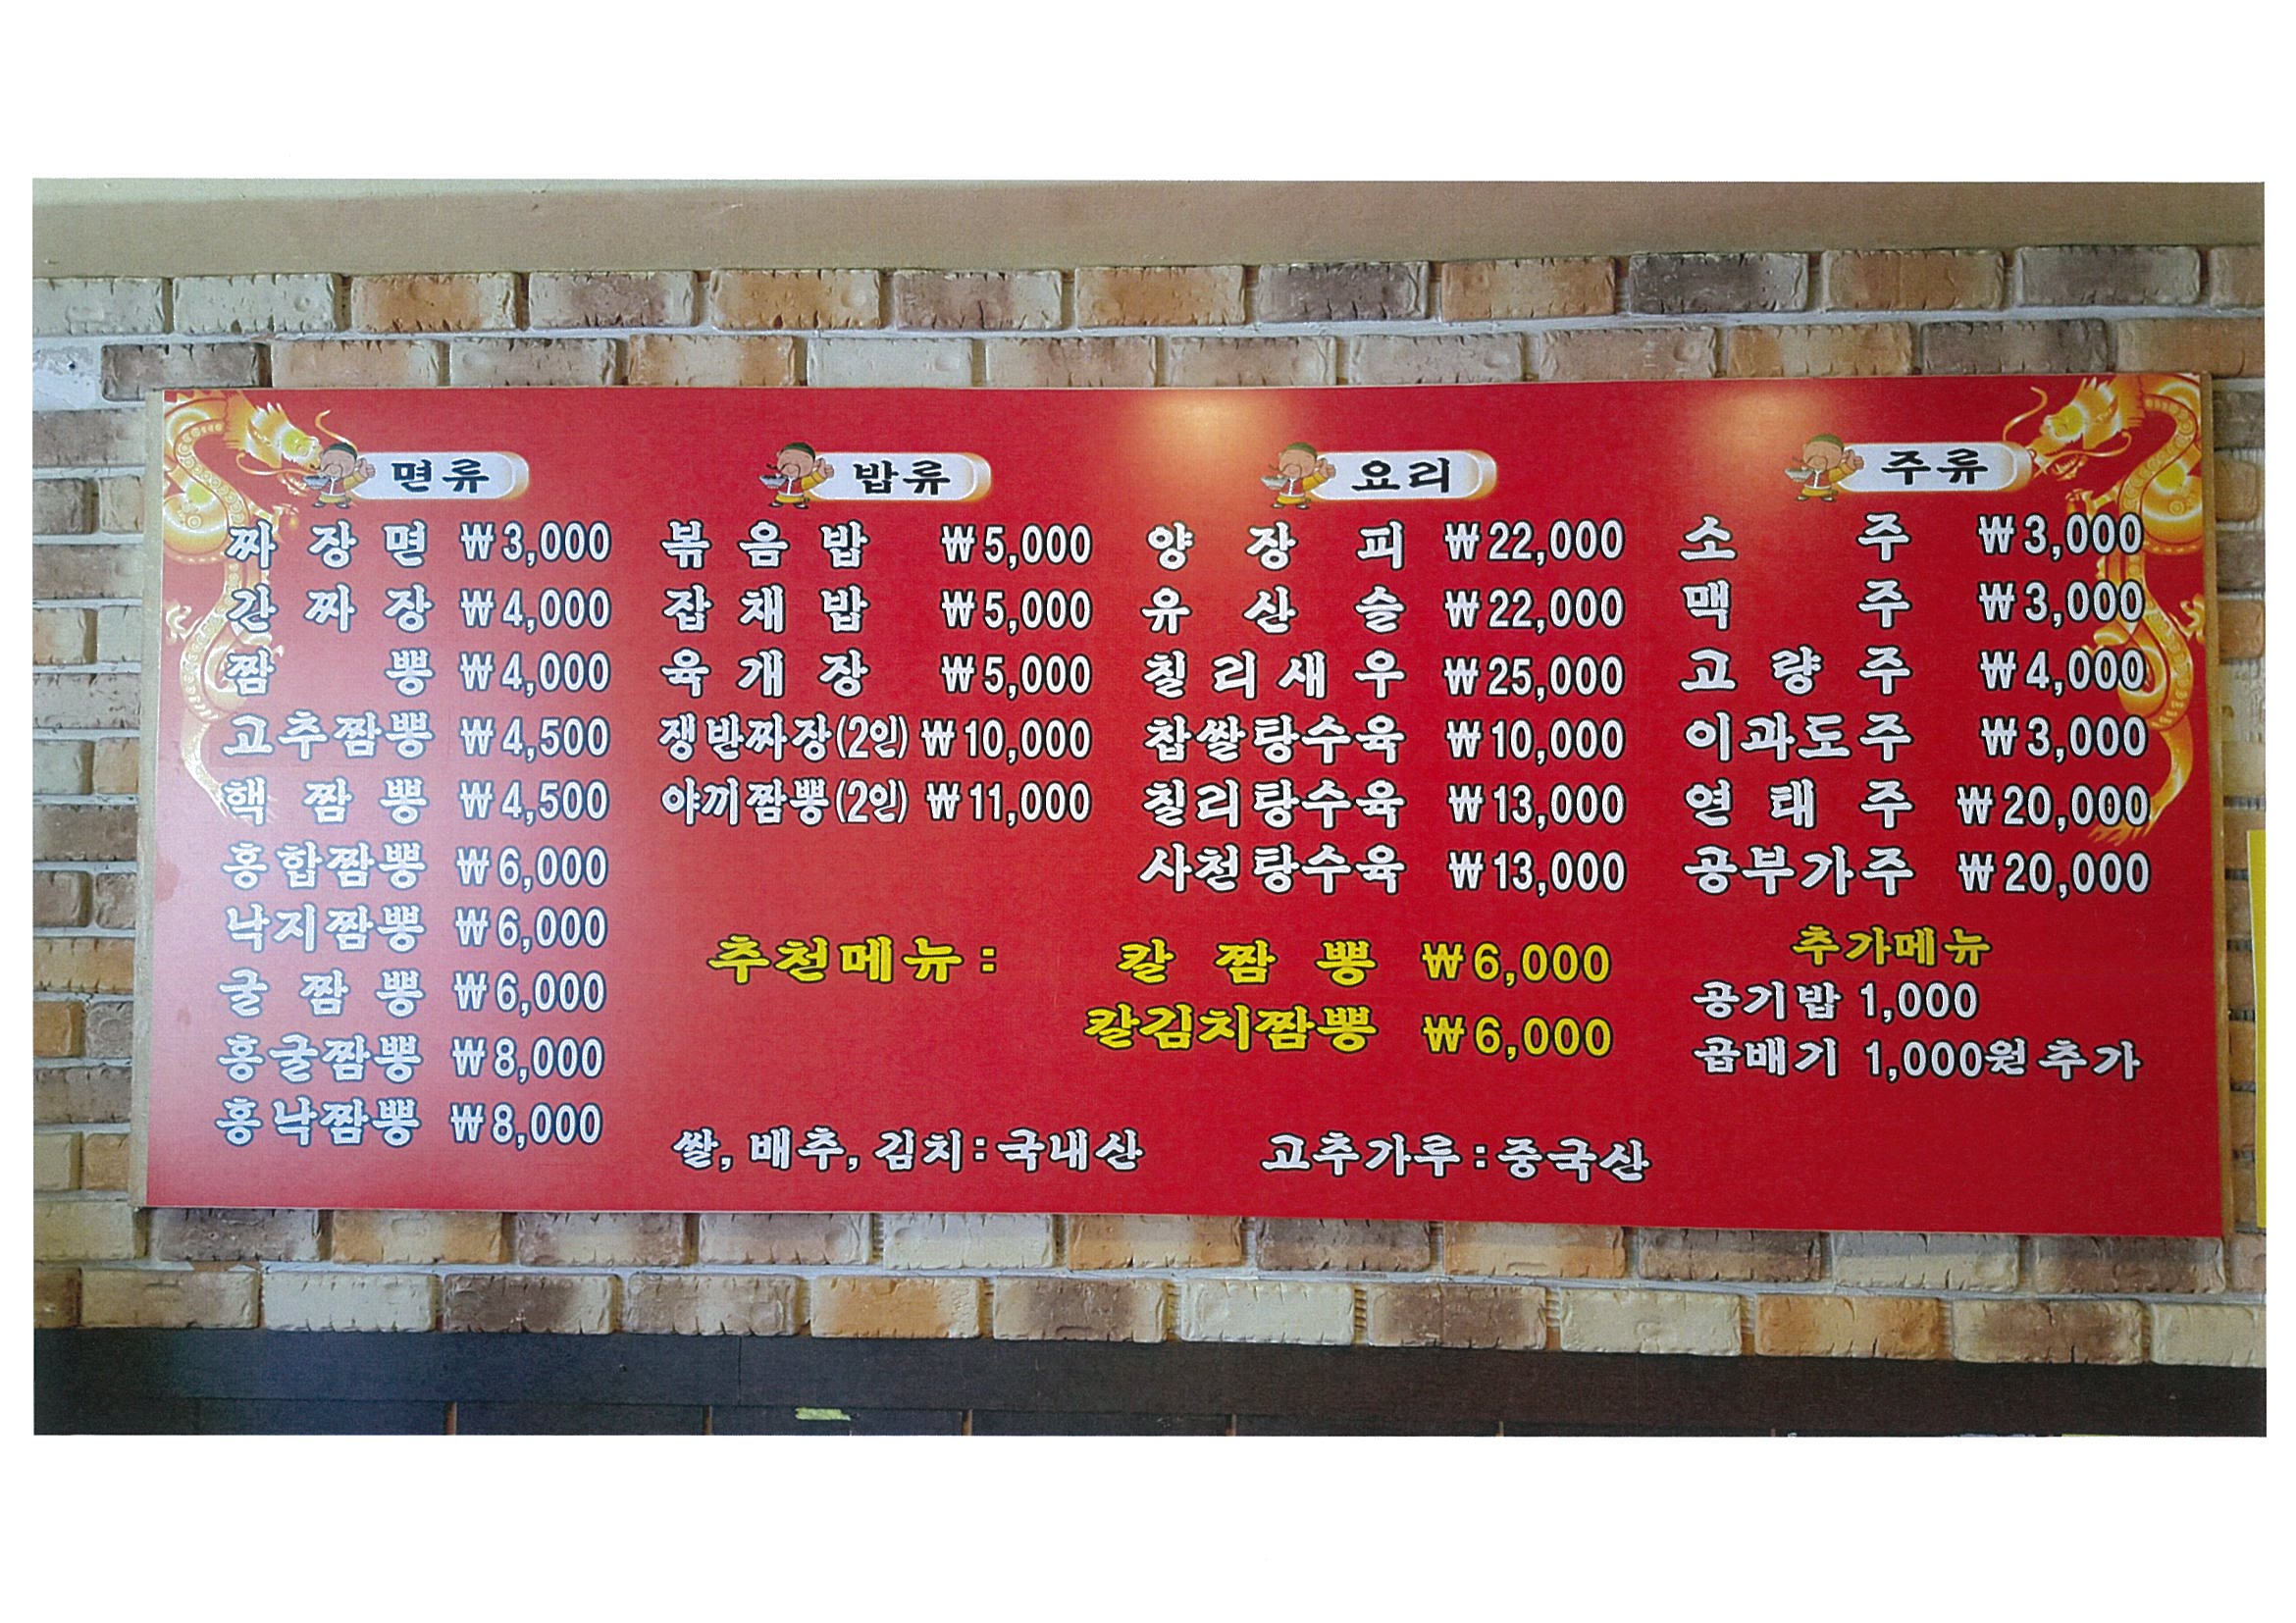 면류
짜장면 ₩3,000
간짜장 ₩4,000
짬뽕 ₩4,000
고추짬뽕 ₩4,500
핵짬뽕 ₩4,500
홍합짬뽕 ₩6,000
낙지짬뽕 ₩6,000
굴짬뽕 ₩6,000
홍굴짬뽕 ₩8,000
홍낙짬뽕 ₩8,000
밥류
볶음밥 ₩5,000
잡채밥 ₩5,000
육개장 ₩5,000
쟁반짜장(2인) ₩10,000
야끼짬뽕(2인) ₩11,000
요리
양장피 ₩22,000
유산슬 ₩22,000
칠리새우 ₩25,000
찹쌀탕수육 ₩10,000
칠리탕수육 ₩13,000
사천탕수육 ₩13,000
주류
소주 ₩3,000
맥주 ₩3,000
고량주 ₩4,000
이과도주 ₩3,000
연태주 ₩20,000
공부가주 ₩20,000
추천메뉴: 칼짬뽕 ₩6,000
칼김치짬뽕 ₩6,000
추가메뉴
공기밥 1,000
곱배기 1,000원 추가
쌀, 배추, 김치:국내산 고추가루:중국산